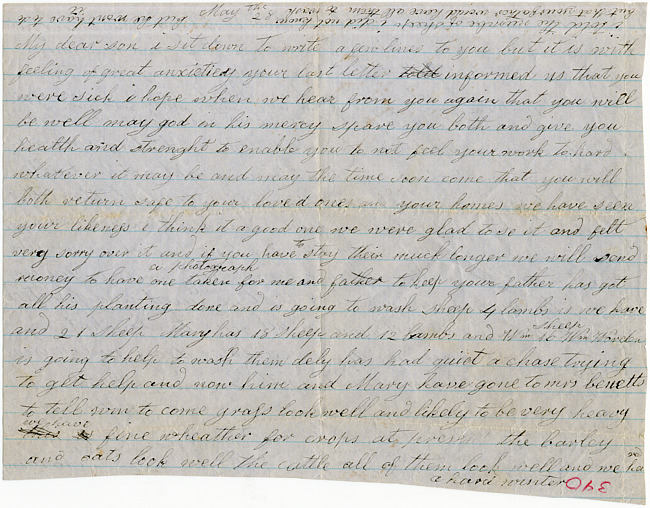 May the 27
i told the number of sheep i did not know
but that would have all them to wash but he wont have it
My dear son i sit down to write a few lines to you but it is with
feeling of great anxietiey your last letter told informed us that you
were sick i hope when we hear from you again that you will
be well may god in his mercy spare you both and give you
health and strenght to enable you to not feel your work to hard
whatever it may be and may the time soon come that you will
both return safe to your loved ones and your homes we have seen
your likenys i think it a good one we were glad to se it and felt
very sorry over it and if you have to stay their much longer we will send
money to have one a photograph taken for me and father to keep your father has got
all his planting done and is going to wash sheep 4 lambs is we have
and 21 sheep Mary has 18 sheep and 12 lambs and Wm 16 sheep Wm Worden
is going to help to wash them dely has had quiet a chase trying
to get help and now him and Mary have gone to mrs benetts
to tell wm to come grass look well and likely to be very heavy
we have fine wheather for crops at presnt the barley
and oats look well the cattle all of them look well and we ha ve
a hard winter 390